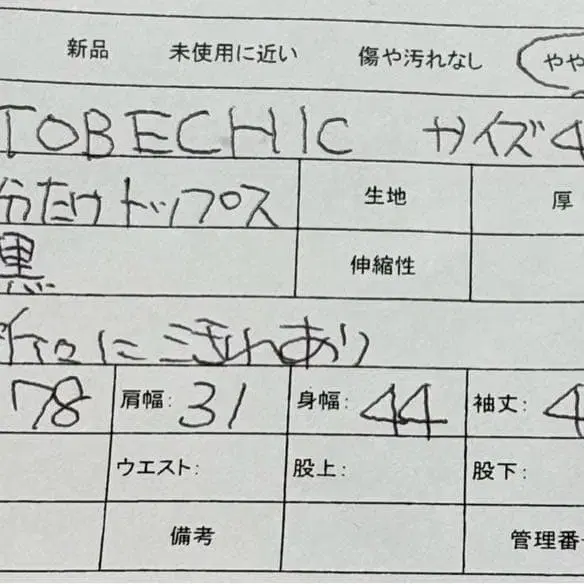 新品 未使用に近い 傷や汚れなし やや
TOBECHIC サイズ4
分たけトップス 生地 厚
黒 伸縮性
にごきれあり
78 肩幅: 31 身幅: 44 袖丈: 4
ウエスト: 股上: 股下:
備考 管理番